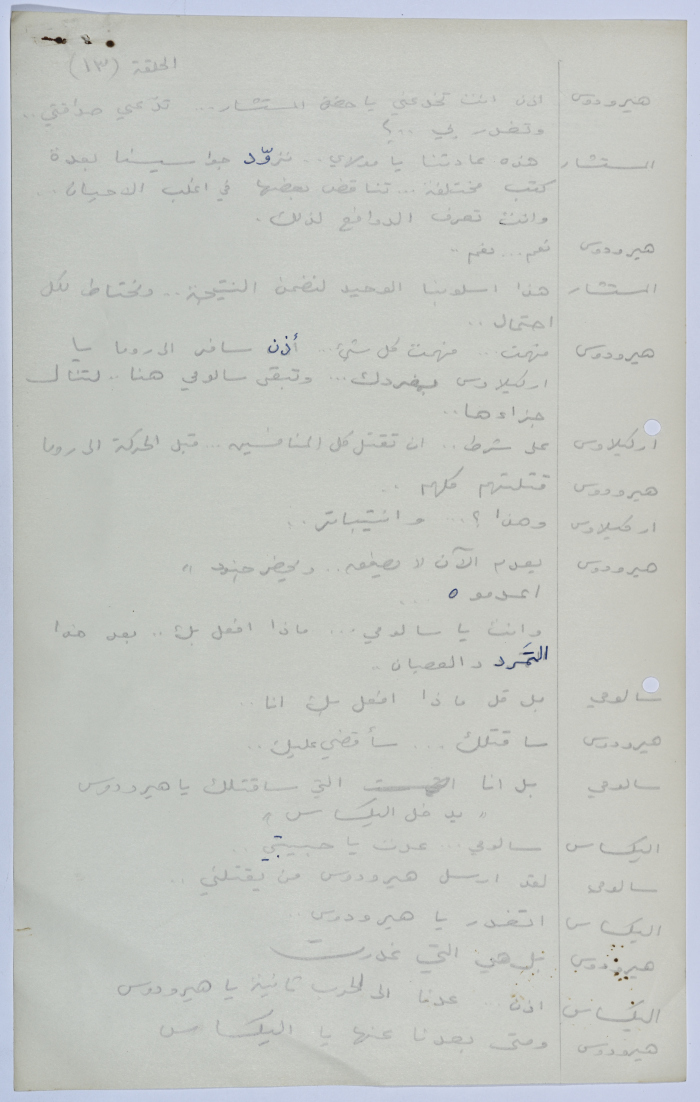 الحلقة (١٣)
هيرودوس اذن انت تخدعني يا حضرة المستشار... تدّعي صداقتي..
وتغدر بي ..؟
المستشار هذه عادتنا يا مولاي.. نزوّد جواسيسنا بعدة
كتب مختلفة... تناقض بعضها في اغلب الاحيان..
وانت تعرف الدوافع لذلك.
هيرودوس نعم... نعم..
المستشار هذا اسلوبنا الوحيد لنضمن النتيجة.. ونحتاط لكل
احتمال..
هيرودوس فهمت... فهمت كل شئ... أذن سافر الى روما يا
اركيلاوس بمفردك... وتبقى سالومي هنا.. لتنال
جزاءها..
اركيلاوس على شرط.. ان تقتل كل المنافسين... قبل الحركة الى روما
هيرودوس قتلتهم كلهم..
اركيلاوس وهذا؟... وانتيباتر..
هيرودوس يعدم الآن.. ويحضر جنود "
اعدموه..
وانت يا سالومي... ماذا افعل بك.. بعد هذا
التمَرد والعصيان..
سالومي بل قل ماذا افعل بك انا..
هيرودوس ساقتلك... سأقضي عليك..
سالومي بل انا التي ساقتلك يا هيرودوس
" يدخل اليكساس "
اليكساس سالومي... عدت يا حبيبتي..
سالومي لقد ارسل هيرودوس من يقتلني..
اليكساس اتغدر يا هيرودوس..
هيرودوس بل هي التي غدرت
اليكساس اذن.. عدنا الى الحرب ثانية يا هيرودوس
هيرودوس ومتى بعدنا عنها يا اليكساس